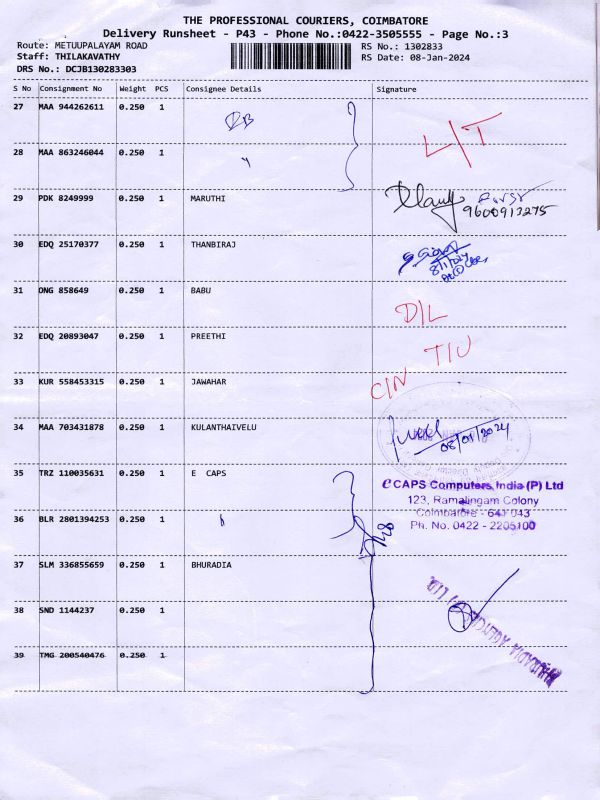 THE PROFESSIONAL COURIERS, COIMBATORE
Delivery Runsheet - P43 - Phone No.:0422-3505555 - Page No.:3
Route: METUUPALAYAM ROAD RS No.: 1302833
Staff: THILAKAVATHY RS Date: 08-Jan-2024
DRS No.: DCJB130283303
S No Consignment No Weight PCS Consignee Details Signature
27 MAA 944262611 0.250 1
28 MAA 863246044 0.250 1
L/T
29 PDK 8249999 0.250 1 MARUTHI
9600913275
30 EDQ 25170377 0.250 1 THANBIRAJ
8/1/24
31 ONG 858649 0.250 1 BABU
D/L
32 EDQ 20893047 0.250 1 PREETHI
T/U
33 KUR 558453315 0.250 1 JAWAHAR
C/N
34 MAA 703431878 0.250 1 KULANTHAIVELU
08/01/2024
35 TRZ 110035631 0.250 1 E CAPS
eCAPS Computers India (P) Ltd
123, Ramalingam Colony
Coimbatore - 641 043
Ph. No. 0422 - 2205100
36 BLR 2801394253 0.250 1
37 SLM 336855659 0.250 1 BHURADIA
38 SND 1144237 0.250 1
BHURADIA AGENCIES (P) LTD.
39 TMG 200540476 0.250 1